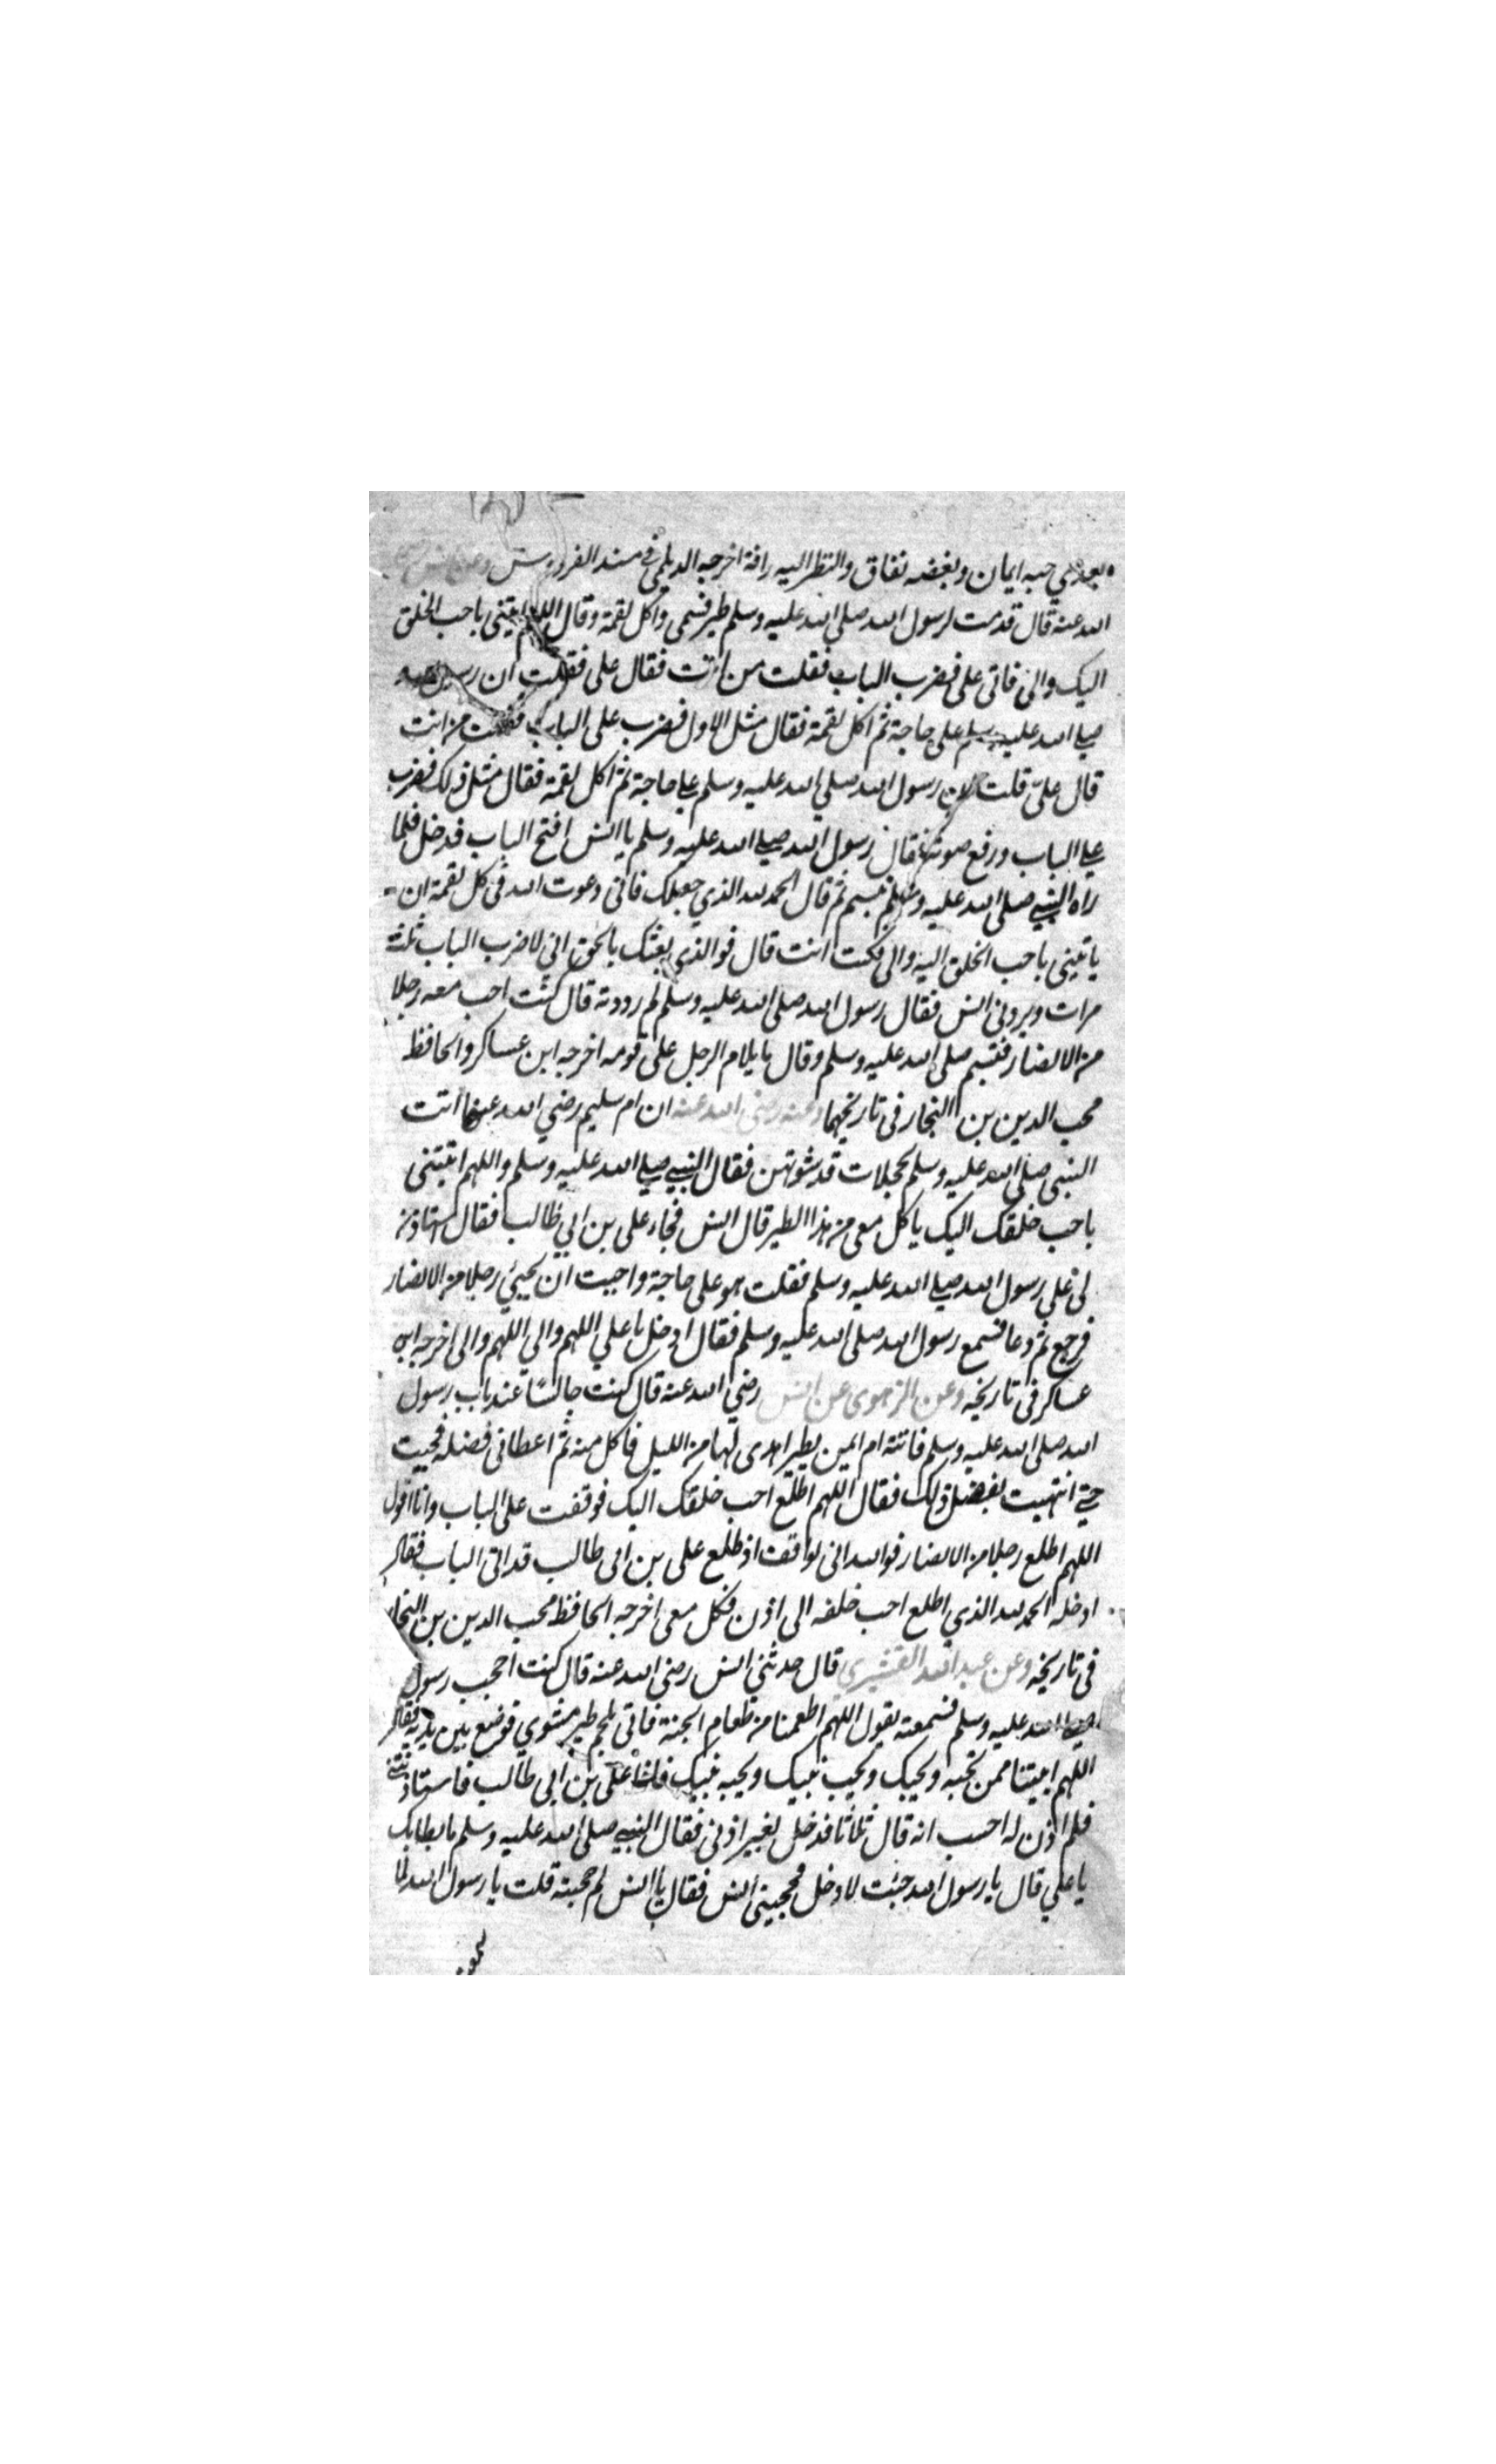 بعدي حبه ايمان وبغضه نفاق والنظر اليه رافة اخرجه الديلمي في مسند الفردوس وعن انس رضي
الله عنه قال قدمت لرسول الله صلى الله عليه وسلم طير فسمى واكل لقمة وقال اللهم ايتنى باحب الخلق
اليك والى فاتى على فضرب الباب فقلت من انت فقال على فقلت ان رسول الله
صلى الله عليه وسلم على حاجة ثم اكل لقمة فقال مثل الاول فضرب على الباب فقلت من انت
قال علىّ قلت ان رسول الله صلى الله عليه وسلم على حاجة ثم اكل لقمة فقال مثل ذلك فضرب
على الباب ورفع صوته فقال رسول الله صلى الله عليه وسلم يا انس افتح الباب فدخل فلما
راه النبي صلى الله عليه وسلم تبسم ثم قال الحمد لله الذي جعلك فانى دعوت الله فى كل لقمة ان
ياتينى باحب الخلق اليه والى فكنت انت قال فوالذى بعثك بالحق انى لاضرب الباب ثلثة
مرات ويردنى انس فقال رسول الله صلى الله عليه وسلم لم رددته قال كنت احب معه رجلا
من الانصار فتبسم صلى الله عليه وسلم وقال ما يلام الرجل على قومه اخرجه ابن عساكر والحافظ
محب الدين بن النجار فى تاريخهما وعنه رضى الله عنه ان ام سليم رضي الله عنها اتت
النبى صلى الله عليه وسلم بحجلات قد شوتهن فقال النبي صلى الله عليه وسلم واللهم ائتنى
باحب خلقك اليك ياكل معى من هذا الطير قال انس فجاء على بن ابي طالب فقال استاذن
لى على رسول الله صلى الله عليه وسلم فقلت هو على حاجة واحببت ان يحيئ رجلا من الانصار
فرجع ثم دعا فسمع رسول الله صلى الله عليه وسلم فقال ادخل يا علي اللهم والي اللهم والى اخرجه ابن
عساكر فى تاريخه وعن الزهرى عن انس رضي الله عنه قال كنت جالسًا عند باب رسول
الله صلى الله عليه وسلم فاتته ام ايمن بطير اهدى لها من الليل فاكل منه ثم اعطانى فضله فجيت
حتى انتهيت بفضل ذلك فقال اللهم اطلع احب خلقك اليك فوقفت على الباب وانا اقول
اللهم اطلع رجلا من الانصار فوالله انى لواقف اذ طلع على بن ابى طالب قد اتى الباب فقال
ادخله الحمد لله الذي اطلع احب خلقه الى اذن فكل معى اخرجه الحافظ محب الدين بن النجار
فى تاريخه وعن عبد الله القشيرى قال حدثني انس رضى الله عنه قال كنت احجب رسول
الله صلى الله عليه وسلم فسمعته يقول اللهم اطعمنا من طعام الجنة فاتى بلحم طير مشوي فوضع بين يديه فقال
اللهم ايتنا ممن تحبه ويحبك ويحب نبيك ويحبه نبيك فاذا على بن ابي طالب فاستاذننى
فلم اذن له احسب انه قال ثلاثا فدخل بغير اذنى فقال النبي صلى الله عليه وسلم ما بطابك
يا علي قال يا رسول الله جئت لادخل فحجبنى انس فقال يا انس لم حجبته قلت يا رسول الله لما
سمعت